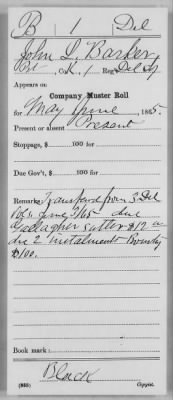 B | 1 | Del
John L. Barker
Pvt., Co. , 1 Reg't Del. Inf.
Appears on
Company Muster Roll
for May & June, 1865.
Present or absent Present
Stoppage, $ 100 for
Due Gov't, $ 100 for
Remarks: Transferred from 3 Del
Vols. June 3/65 due
Gallagher sutler $12
due 2 instalments Bounty
$100.
Book mark:
Black
(858) Copyist.